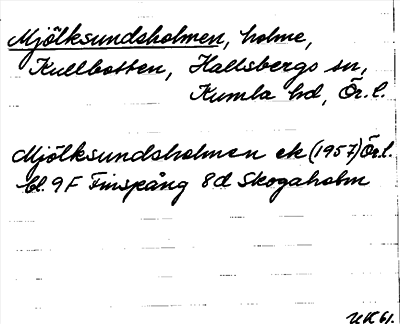 Mjölksundsholmen, holme,
Kullbotten, Hallsbergs sn,
Kumla hd, Ör. l.
Mjölksundsholmen ek (1957) Ör. l.
bl. 9 F Finspång 8d Skogaholm
UK 61.